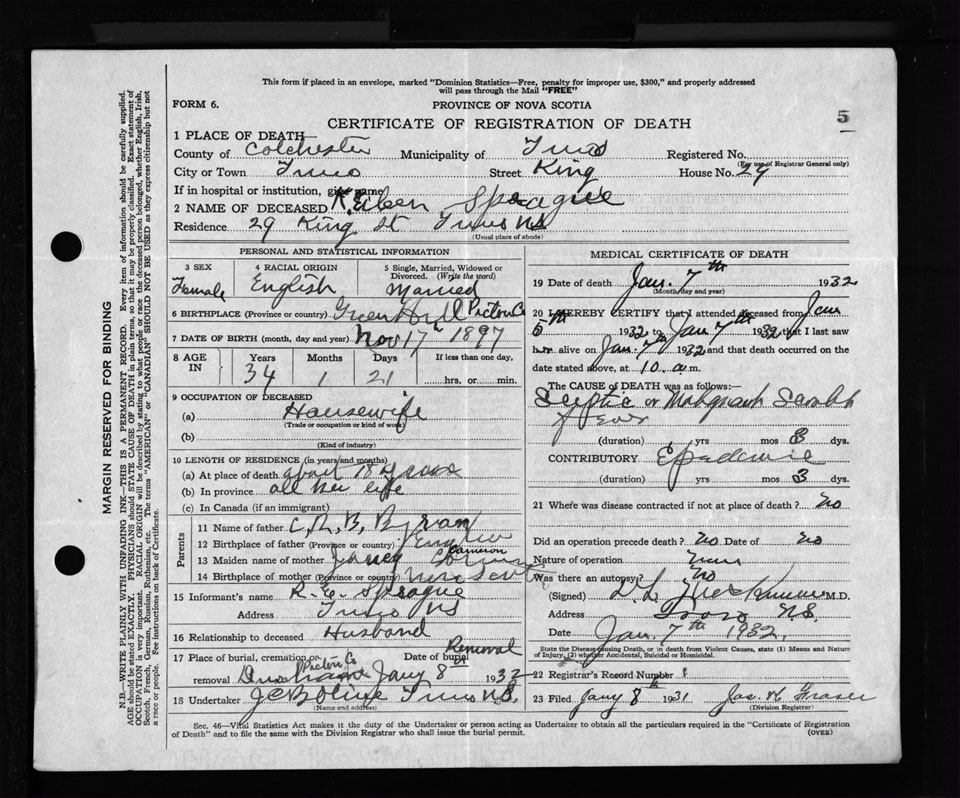 This form if placed in an envelope, marked "Dominion Statistics—Free, penalty for improper use, $300," and properly addressed
will pass through the Mail "FREE"
FORM 6.
PROVINCE OF NOVA SCOTIA
5
CERTIFICATE OF REGISTRATION OF DEATH
1 PLACE OF DEATH
County of Colchester Municipality of Truro Registered No.
(For use of Registrar General only)
City or Town Truro Street King House No. 29
If in hospital or institution, give name
2 NAME OF DECEASED K. Eileen Sprague
Residence 29 King St Truro NS
(Usual place of abode)
PERSONAL AND STATISTICAL INFORMATION
3 SEX Female
4 RACIAL ORIGIN English
5 Single, Married, Widowed or Divorced. (Write the word) Married
6 BIRTHPLACE (Province or country) Green Hill Pictou Co
7 DATE OF BIRTH (month, day and year) Nov 17th 1897
8 AGE IN Years 34 Months 1 Days 21 If less than one day, hrs. or min.
9 OCCUPATION OF DECEASED
(a) Housewife
(Trade or occupation or kind of work)
(b)
(Kind of industry)
10 LENGTH OF RESIDENCE (in years and months)
(a) At place of death about 18 years
(b) In province all her life
(c) In Canada (if an immigrant)
Parents
11 Name of father C. R. B. Bryan
12 Birthplace of father (Province or country)
13 Maiden name of mother Cameron
14 Birthplace of mother (Province or country) Nova Scotia
15 Informant's name R. E. Sprague
Address Truro NS
16 Relationship to deceased Husband
17 Place of burial, cremation or removal Durham Pictou Co Date of burial or Removal Jany 8 1932
18 Undertaker J C B Olive Truro NS.
(Name and address)
MEDICAL CERTIFICATE OF DEATH
19 Date of death Jan. 7th 1932
(Month day and year)
20 I HEREBY CERTIFY that I attended deceased from Jan
5th 1932 to Jan 7th 1932 that I last saw
her alive on Jan. 7th 1932 and that death occurred on the
date stated above, at 10 a.m.
The CAUSE OF DEATH was as follows:
Septic or Malignant
(duration) yrs mos 3 dys.
CONTRIBUTORY Epidemic
(duration) yrs mos 3 dys.
21 Where was disease contracted if not at place of death? No
Did an operation precede death? No Date of No
Nature of operation
Was there an autopsy? No
(Signed) D. L. M.D.
Address Truro N.S.
Date Jan. 7th 1932.
State the Disease causing Death, or in death from Violent Causes, state (1) Means and Nature
of Injury, (2) whether Accidental, Suicidal or Homicidal.
22 Registrar's Record Number 1
23 Filed Jany 8th 1931 Jas. W. Fraser
(Division Registrar)
Sec. 46—Vital Statistics Act makes it the duty of the Undertaker or person acting as Undertaker to obtain all the particulars required in the "Certificate of Registration
of Death" and to file the same with the Division Registrar who shall issue the burial permit.
(OVER)
MARGIN RESERVED FOR BINDING
N.B.—WRITE PLAINLY WITH UNFADING INK—THIS IS A PERMANENT RECORD. Every item of information should be carefully supplied.
AGE should be stated EXACTLY. PHYSICIANS should STATE CAUSE OF DEATH in plain terms, so that it may be properly classified. Exact statement of
OCCUPATION is very important. RACIAL ORIGIN will be described by stating to what people or race the deceased person belonged, whether English, Irish,
Scotch, French, German, Russian, Ruthenian, etc. The terms "AMERICAN" or "CANADIAN" SHOULD NOT BE USED as they express citizenship but not
a race or people. See instructions on back of Certificate.